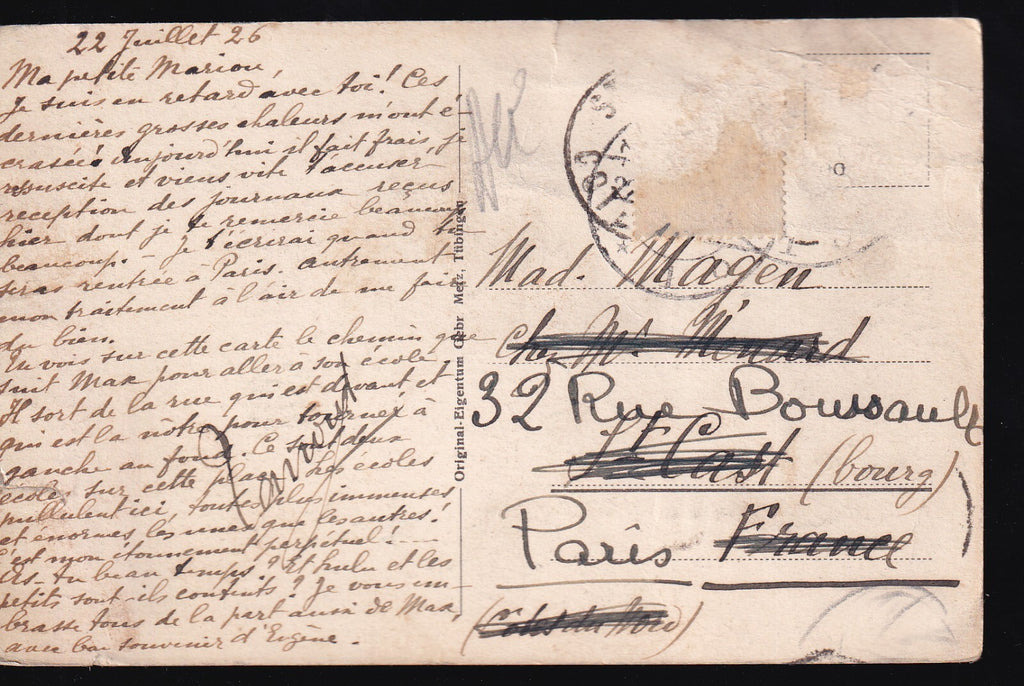 22 Juillet 26
Ma petite Marion,
Je suis en retard avec toi! Ces
dernières grosses chaleurs m'ont é-
crasée! aujourd'hui il fait frais, je
ressuscite et viens vite t'accuser
reception des journaux reçus
hier dont je te remercie beaucoup
beaucoup. - Je t'écrirai quand tu
seras rentrée à Paris. autrement
mon traitement à l'air de me faire
du bien.
Tu vois sur cette carte le chemin que
suit Max pour aller à son école
Il sort de la rue qui est devant et
qui est la nôtre pour tourner à
gauche au fond. Ce sont deux
écoles sur cette place. Les écoles
pullulent ici, toutes plus immenses
et énormes, les unes que les autres!
C'est mon étonnement perpétuel! -
As-tu beau temps? Et lulu et les
petits sont-ils contents? Je vous em-
brasse tous de la part aussi de Max,
avec bon souvenir d'Eugène.
Original-Eigentum Gebr Metz, Tübingen
Mad. Magen
chez Mr Ménard
32 Rue Boursault
St Cast (bourg)
Paris France
(Côtes du Nord)